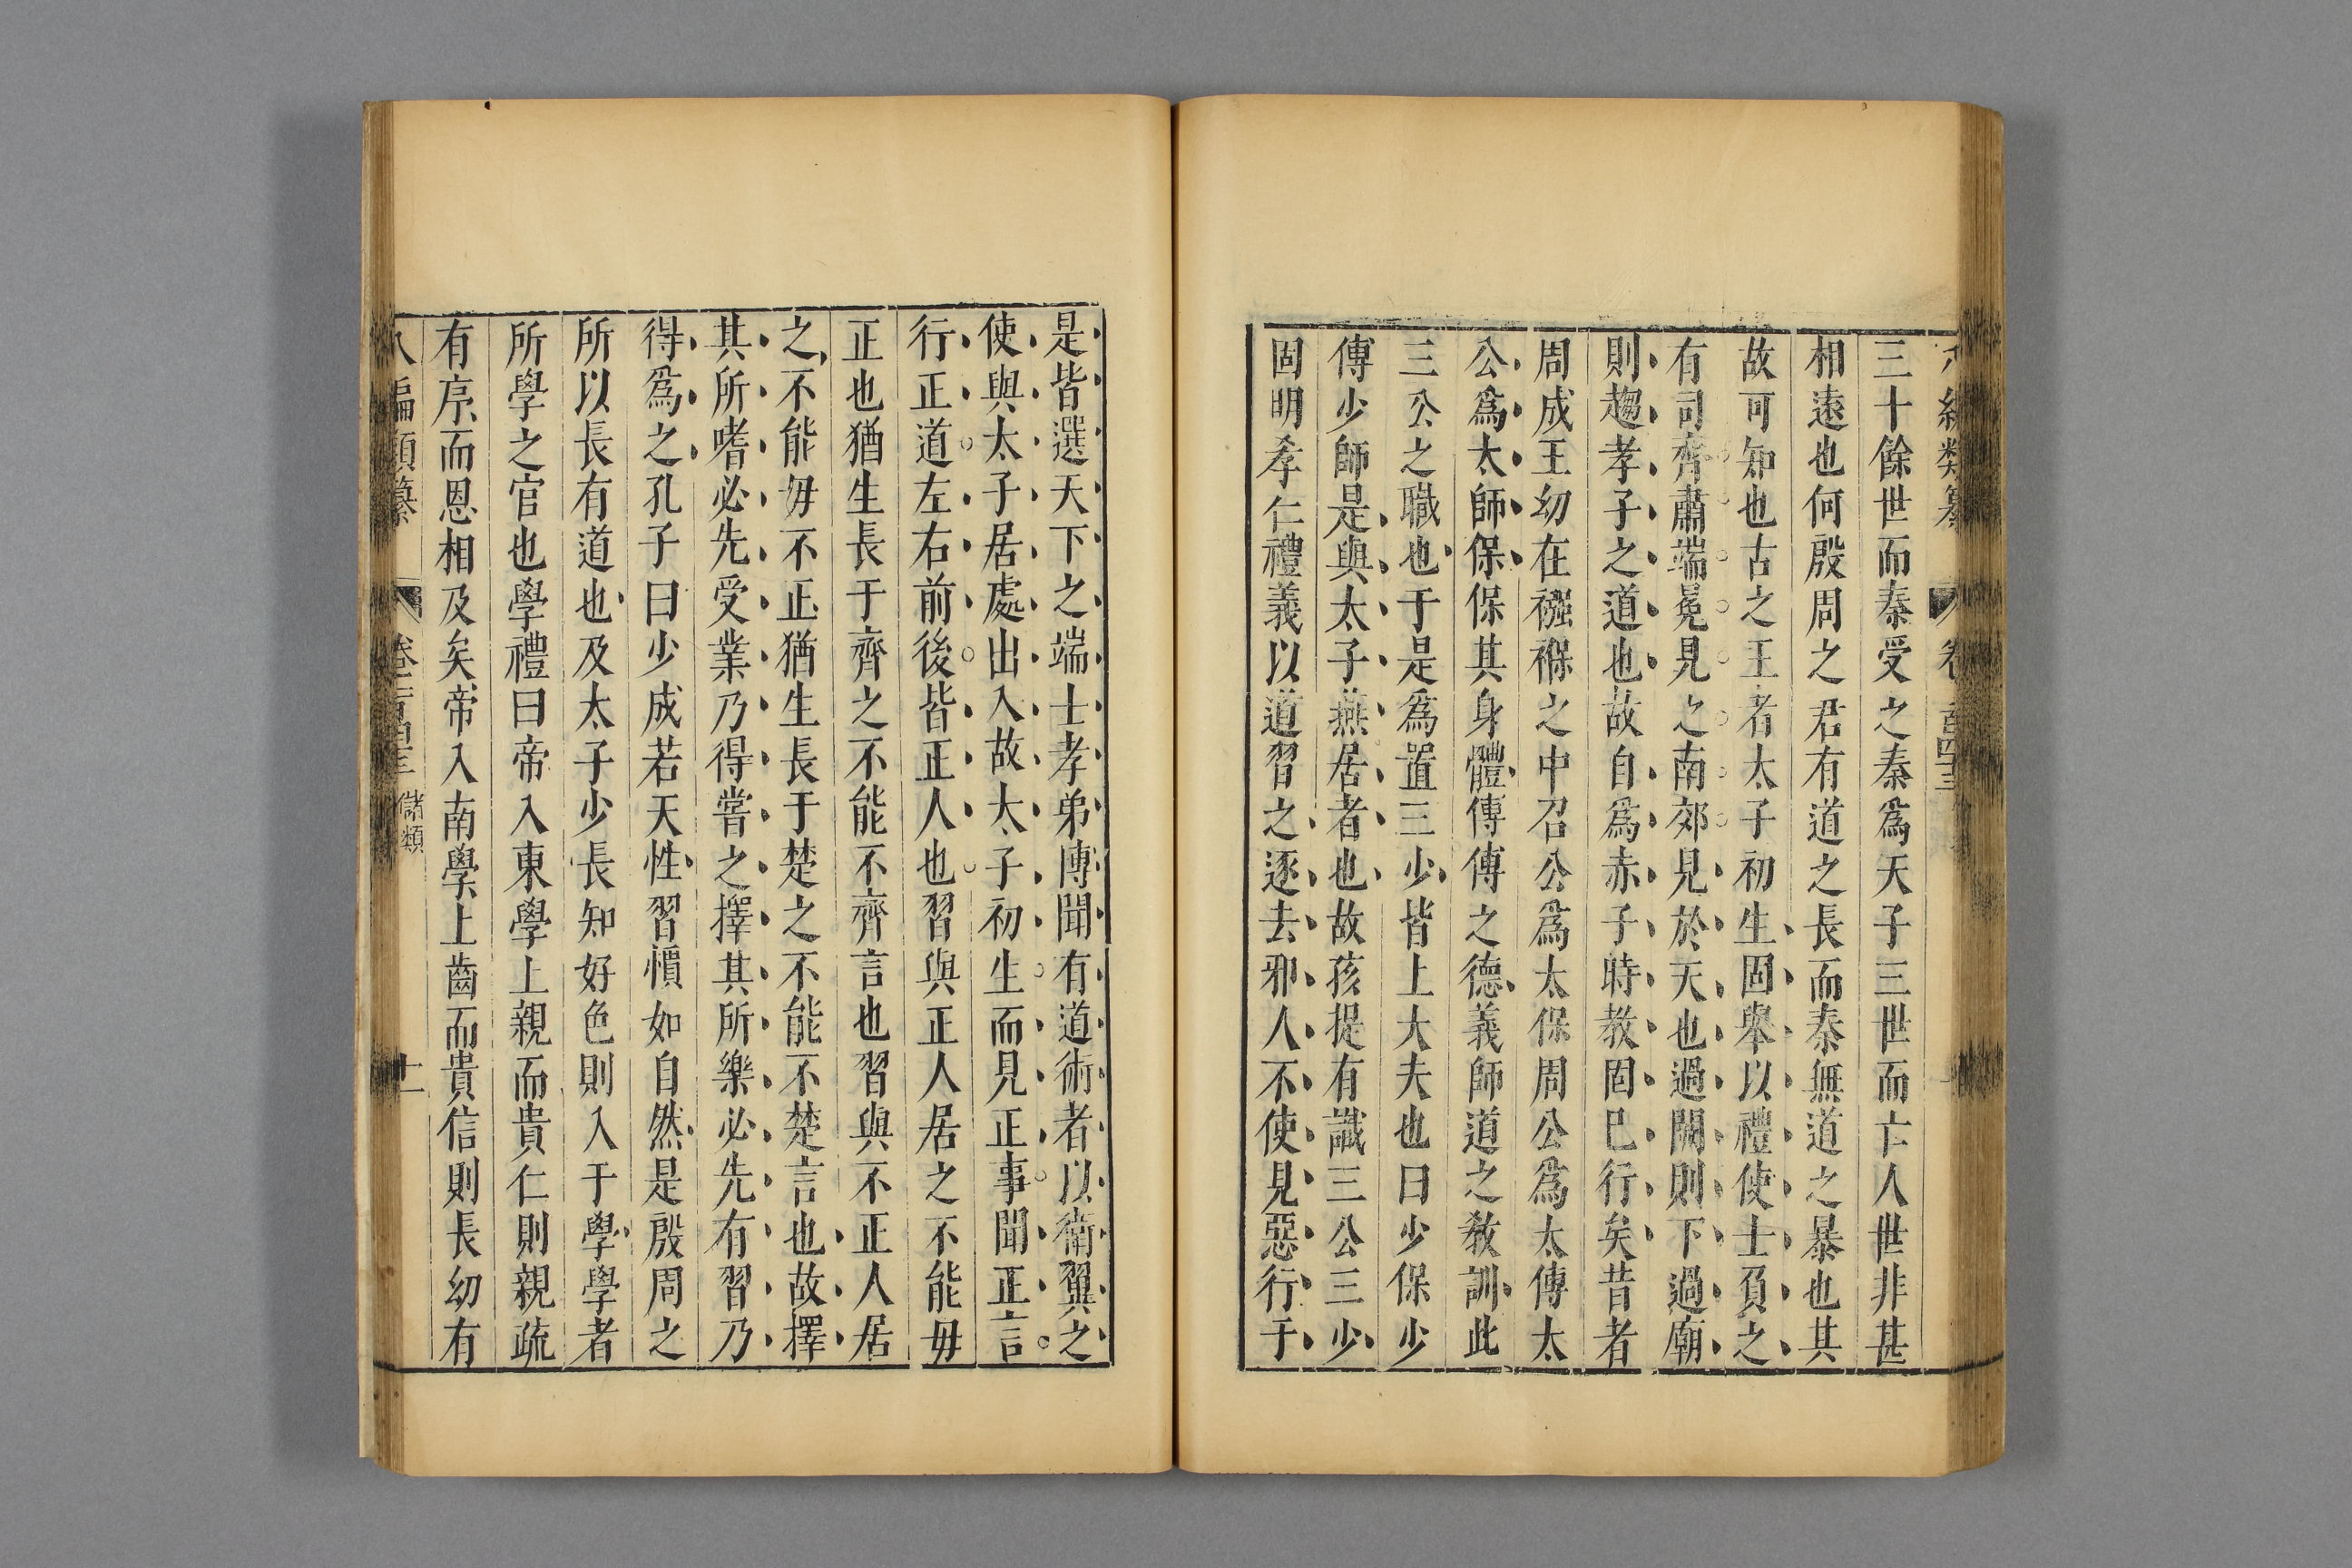 三十餘世而秦受之秦爲天子三世而亡人世非甚
相遠也何殷周之君有道之長而秦無道之暴也其
故可知也古之王者太子初生固舉以禮使士負之
有司齊肅端冕見之南郊見於天也過闕則下過廟
則趨孝子之道也故自爲赤子時教固已行矣昔者
周成王幼在襁褓之中召公爲太保周公爲太傅太
公爲太師保保其身體傅傅之德義師道之敎訓此
三公之職也于是爲置三少皆上大夫也曰少保少
傅少師是與太子燕居者也故孩提有識三公三少
固明孝仁禮義以道習之逐去邪人不使見惡行于
是皆選天下之端士孝弟博聞有道術者以衛翼之
使與太子居處出入故太子初生而見正事聞正言
行正道左右前後皆正人也習與正人居之不能毋
正也猶生長于齊之不能不齊言也習與不正人居
之不能毋不正猶生長于楚之不能不楚言也故擇
其所嗜必先受業乃得嘗之擇其所樂必先有習乃
得爲之孔子曰少成若天性習慣如自然是殷周之
所以長有道也及太子少長知好色則入于學學者
所學之官也學禮曰帝入東學上親而貴仁則親疏
有序而恩相及矣帝入南學上齒而貴信則長幼有
八編類纂 卷二百四三 儲類 十一